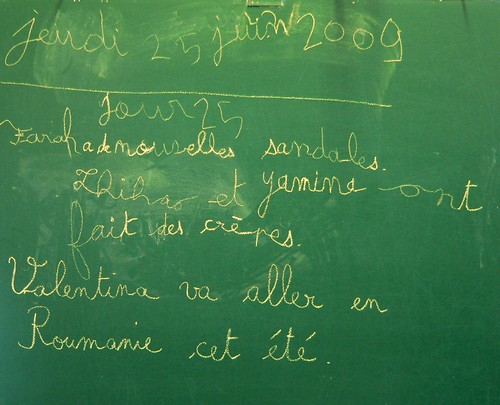 jeudi 25 juin 2009
Jour 25
Farah a de nouvelles sandales.
Zhihao et yamina ont
fait des crêpes.
Valentina va aller en
Roumanie cet été.